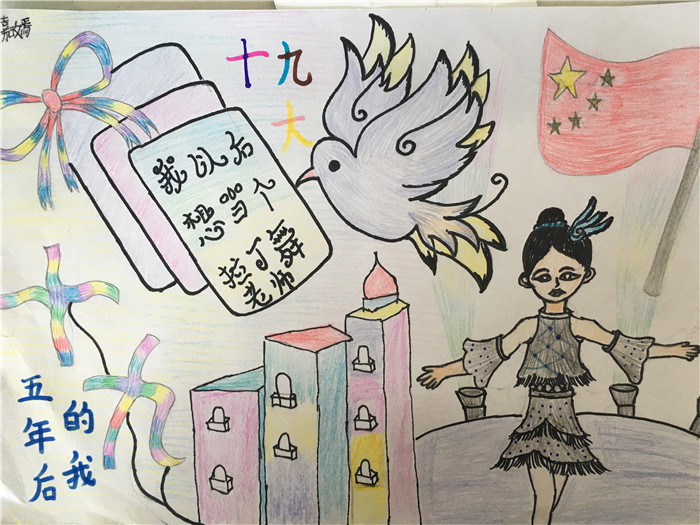 十九大
我以后
想当个
拉丁舞
老师
五年后
的我